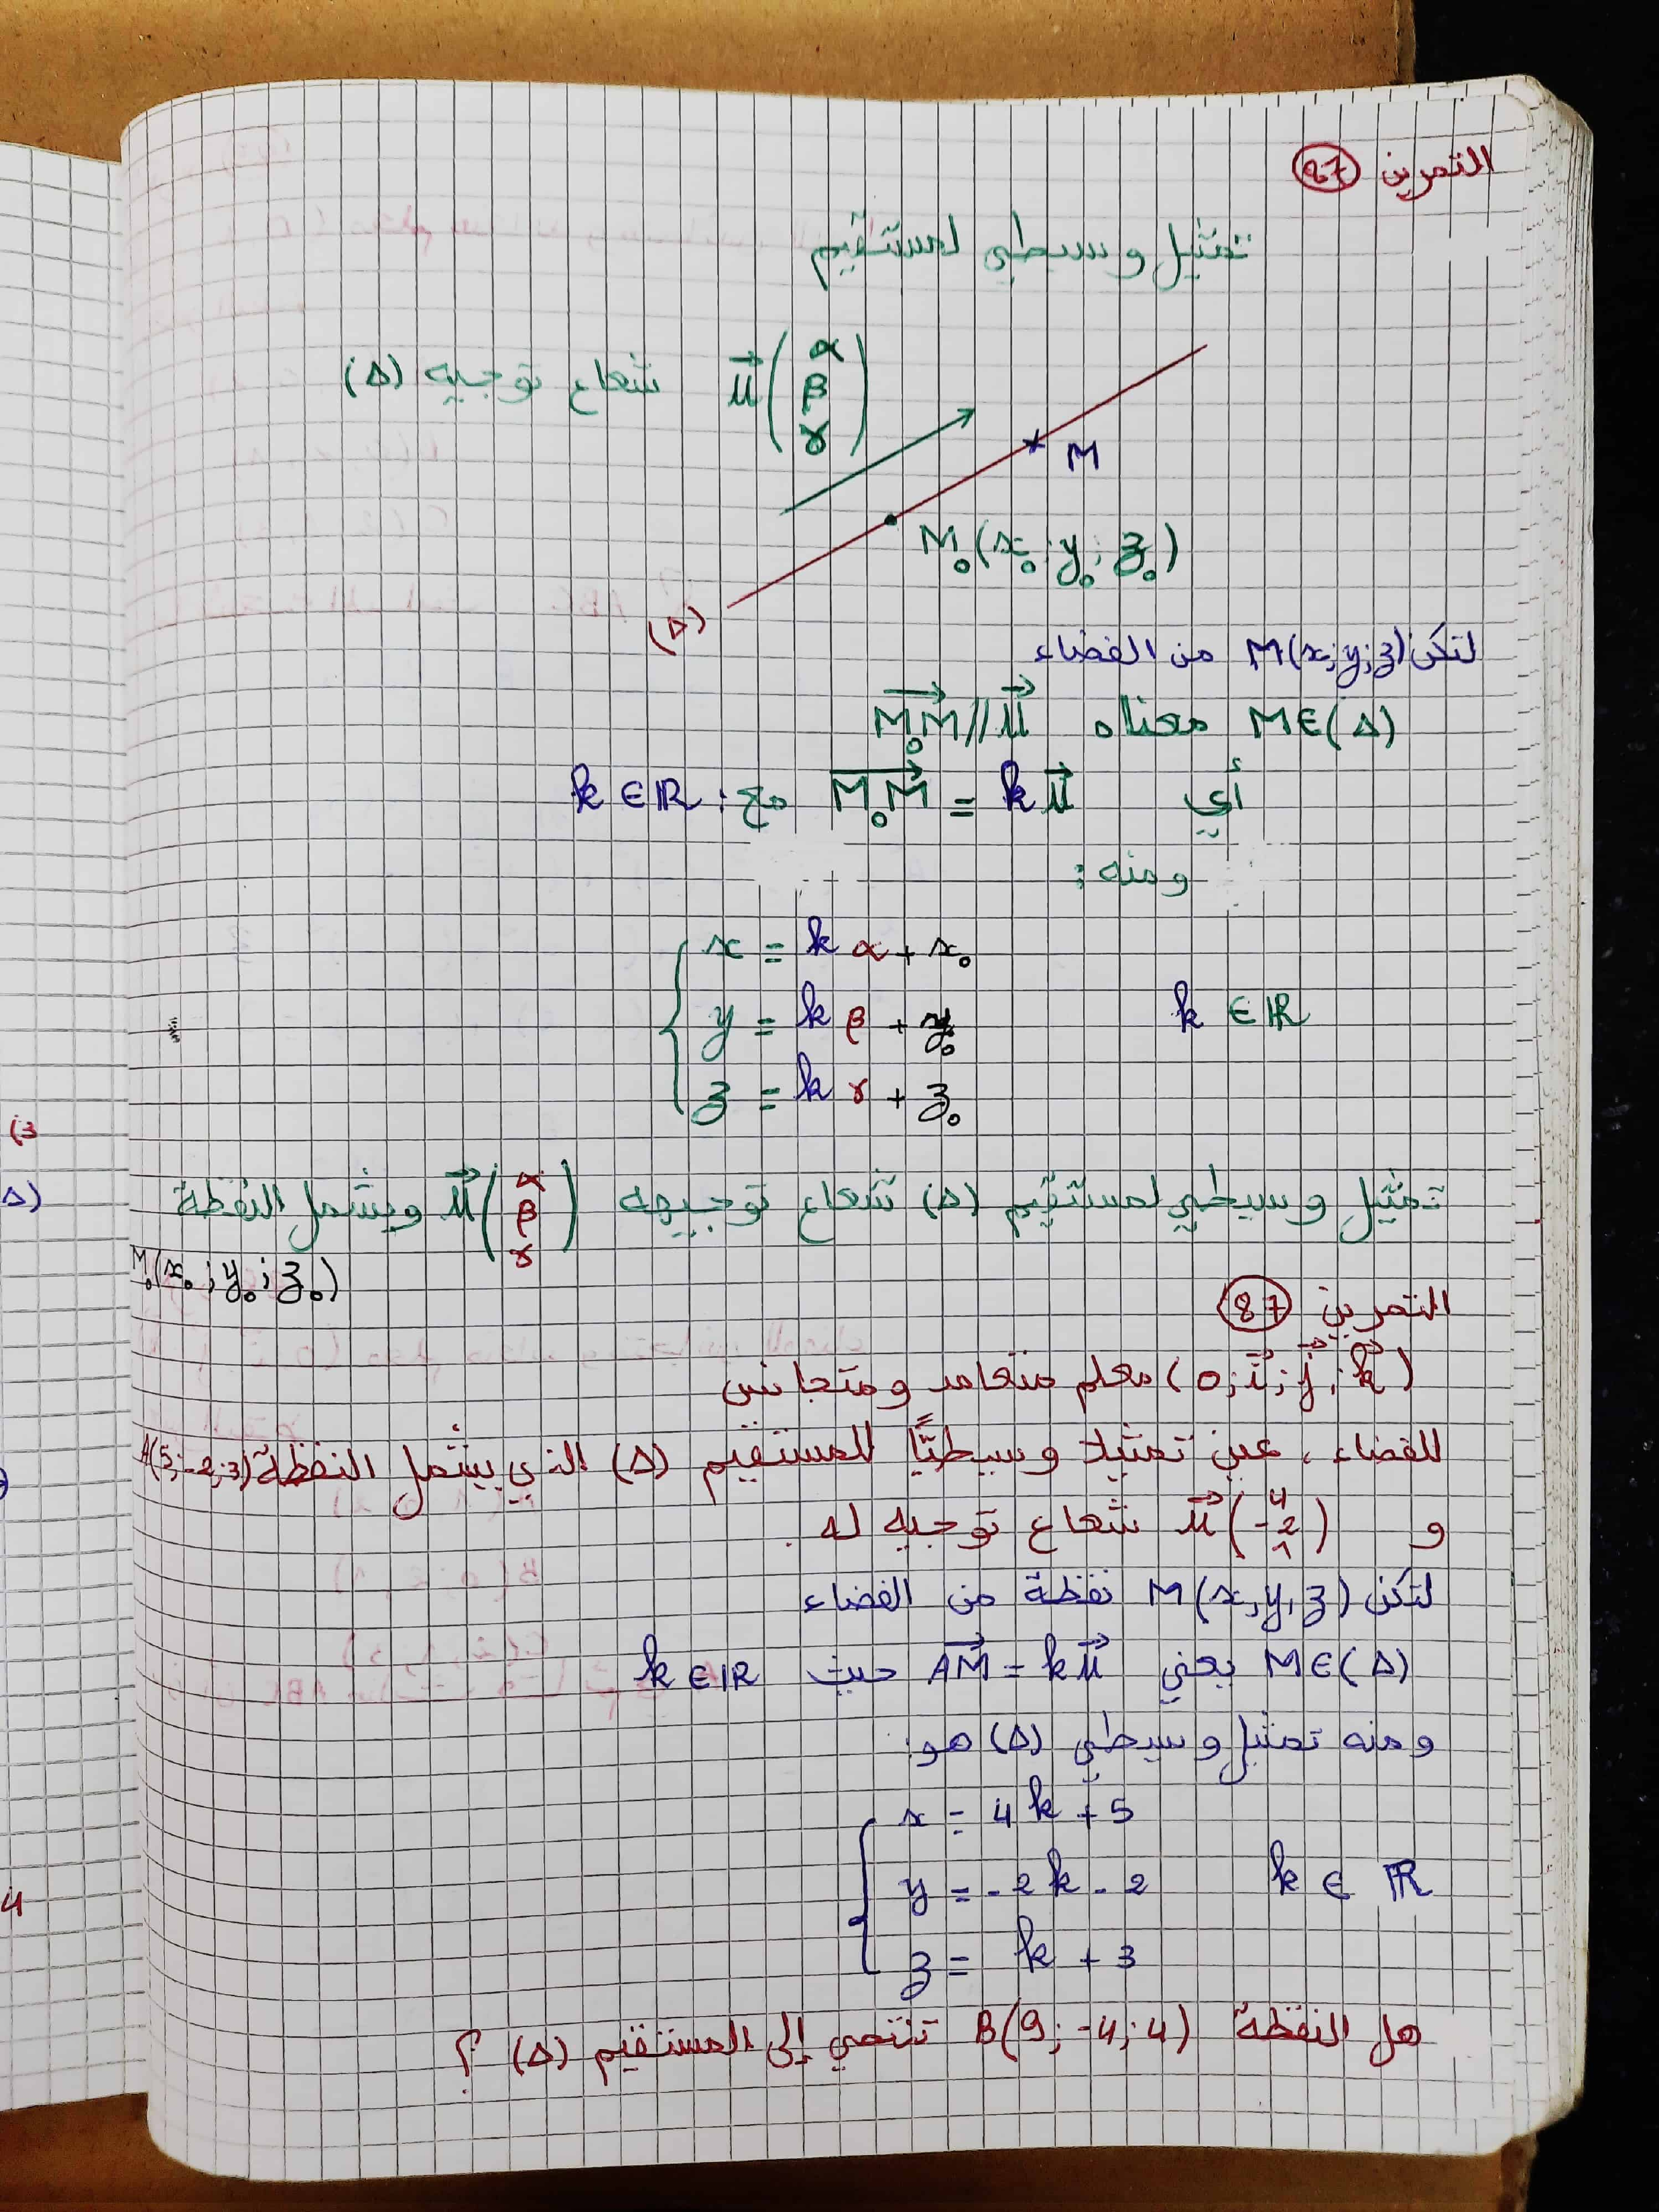 التمرين 97
تمثيل وسيطي لمستقيم
u⃗(α β γ) شعاع توجيه (Δ)
M
M₀(x₀; y₀; z₀)
(Δ)
لتكن M(x;y;z) من الفضاء
M∈(Δ) معناه M₀M⃗ // u⃗
أي M₀M⃗ = k u⃗ مع: k ∈ ℝ
ومنه:
x = kα + x₀
y = kβ + y₀ k ∈ ℝ
z = kγ + z₀
تمثيل وسيطي لمستقيم (Δ) شعاع توجيهه u⃗(α β γ) ويشمل النقطة
M₀(x₀; y₀; z₀)
التمرين 87
(o; i⃗; j⃗; k⃗) معلم متعامد ومتجانس
للفضاء، عين تمثيلا وسيطيًّا للمستقيم (Δ) الذي يشمل النقطة A(5;-2;3)
و u⃗(4 -2 1) شعاع توجيه له.
لتكن M(x,y,z) نقطة من الفضاء
M∈(Δ) يعني AM⃗ = k u⃗ حيث k ∈ ℝ
ومنه تمثيل وسيطي (Δ) هو:
x = 4k + 5
y = -2k - 2 k ∈ ℝ
z = k + 3
هل النقطة B(9;-4;4) تنتمي إلى المستقيم (Δ) ؟
(3
Δ)
4